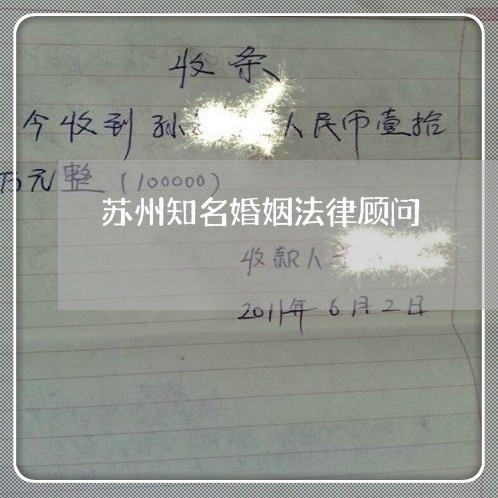 收条
今收到孙 人民币壹拾
万元整（100000）
苏州知名婚姻法律顾问
收款人
2011年6月2日